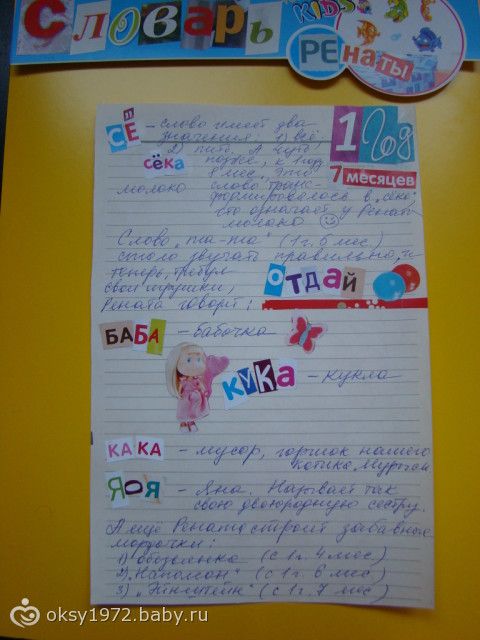 Словарь
KIDS
РЕнаты
1 Год
7 месяцев
СЁ – слово имеет два
значения: 1) всё,
2) пить. А чуть
сёка позже, к 1 году
8 мес. это
молоко слово транс-
формировалось в "сёка",
что означает у Ренаты
молоко
Слово "та-та" (1 г. 6 мес)
стало звучать правильно, и
теперь, требуя
свои игрушки,
Рената говорит:
ОТДАЙ
БАБА – бабочка
КУКа – кукла
КАКА – мусор, горшок нашего
котика Мурыси
ЯОЯ – Яна. Называет так
свою двоюродную сестру.
А ещё Рената строит забавные
мордочки:
1) обезьянка (с 1 г. 4 мес)
2) "Наполеон" (с 1 г. 6 мес)
3) "Эйнштейн" (с 1 г. 7 мес)
oksy1972.baby.ru